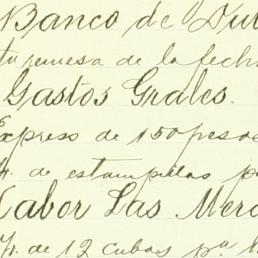 Banco de Dur
su remesa de la fech
Gastos Grales.
Expreso de 150 pesos
Fr. de estampillas p
Labor Las Merc
Fr. de 12 cubas pa. l